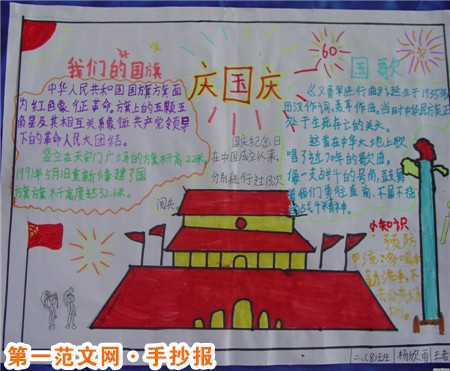 我们的国旗
中华人民共和国国旗旗面
为红色象征革命。旗上的五颗五
角星及其相互关系象征共产党领导
下的革命人民大团结。
竖立在天安门广场的旗杆高22米
1991年5月1日重新修建了国
旗旗杆高度达32.6米。
庆国庆
国庆纪念日
在中国成立以来,
60
国歌
《义勇军进行曲》诞生于1935年
田汉作词,聂耳作曲。当时中华民族正
处于生死存亡的关头。
在中华大地上歌
唱了近70年的歌曲。
像一支战斗的号角,鼓舞
着我们勇往直前、不屈不挠
小知识
预防
二、(8)班
杨欣雨
第一范文网·手抄报